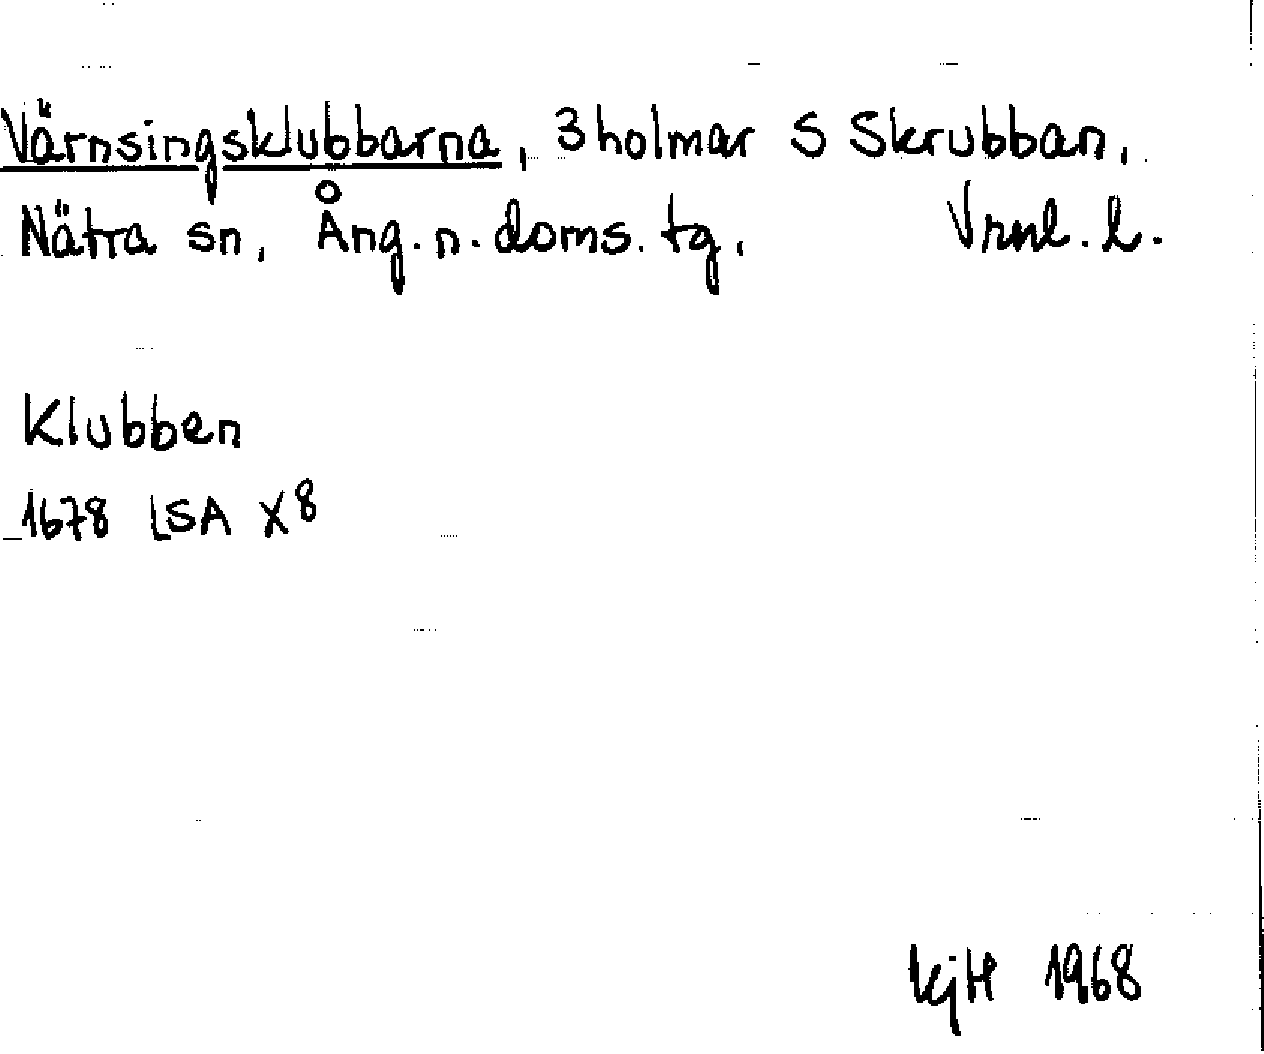 Värnsingsklubbarna, 3 holmar S Skrubban,
Nätra sn, Ång. n. doms. tg. Vrnl. l.
Klubben
1678 LSA X 8
KjH 1968